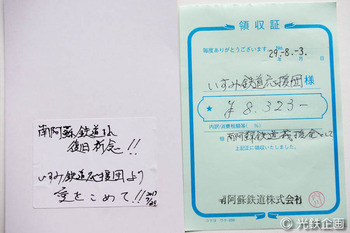 南阿蘇鉄道さん
復旧祈念!!
いすみ鉄道応援団より
愛をこめて!!
領収証
毎度ありがとうございます
29-8-3.
年 月 日
いすみ鉄道応援団様
★ ¥8,323-
内訳(消費税額等) (%)
但 南阿蘇鉄道義援金として
上記正に領収いたしました。
南阿蘇鉄道株式会社
© 光鉄企画